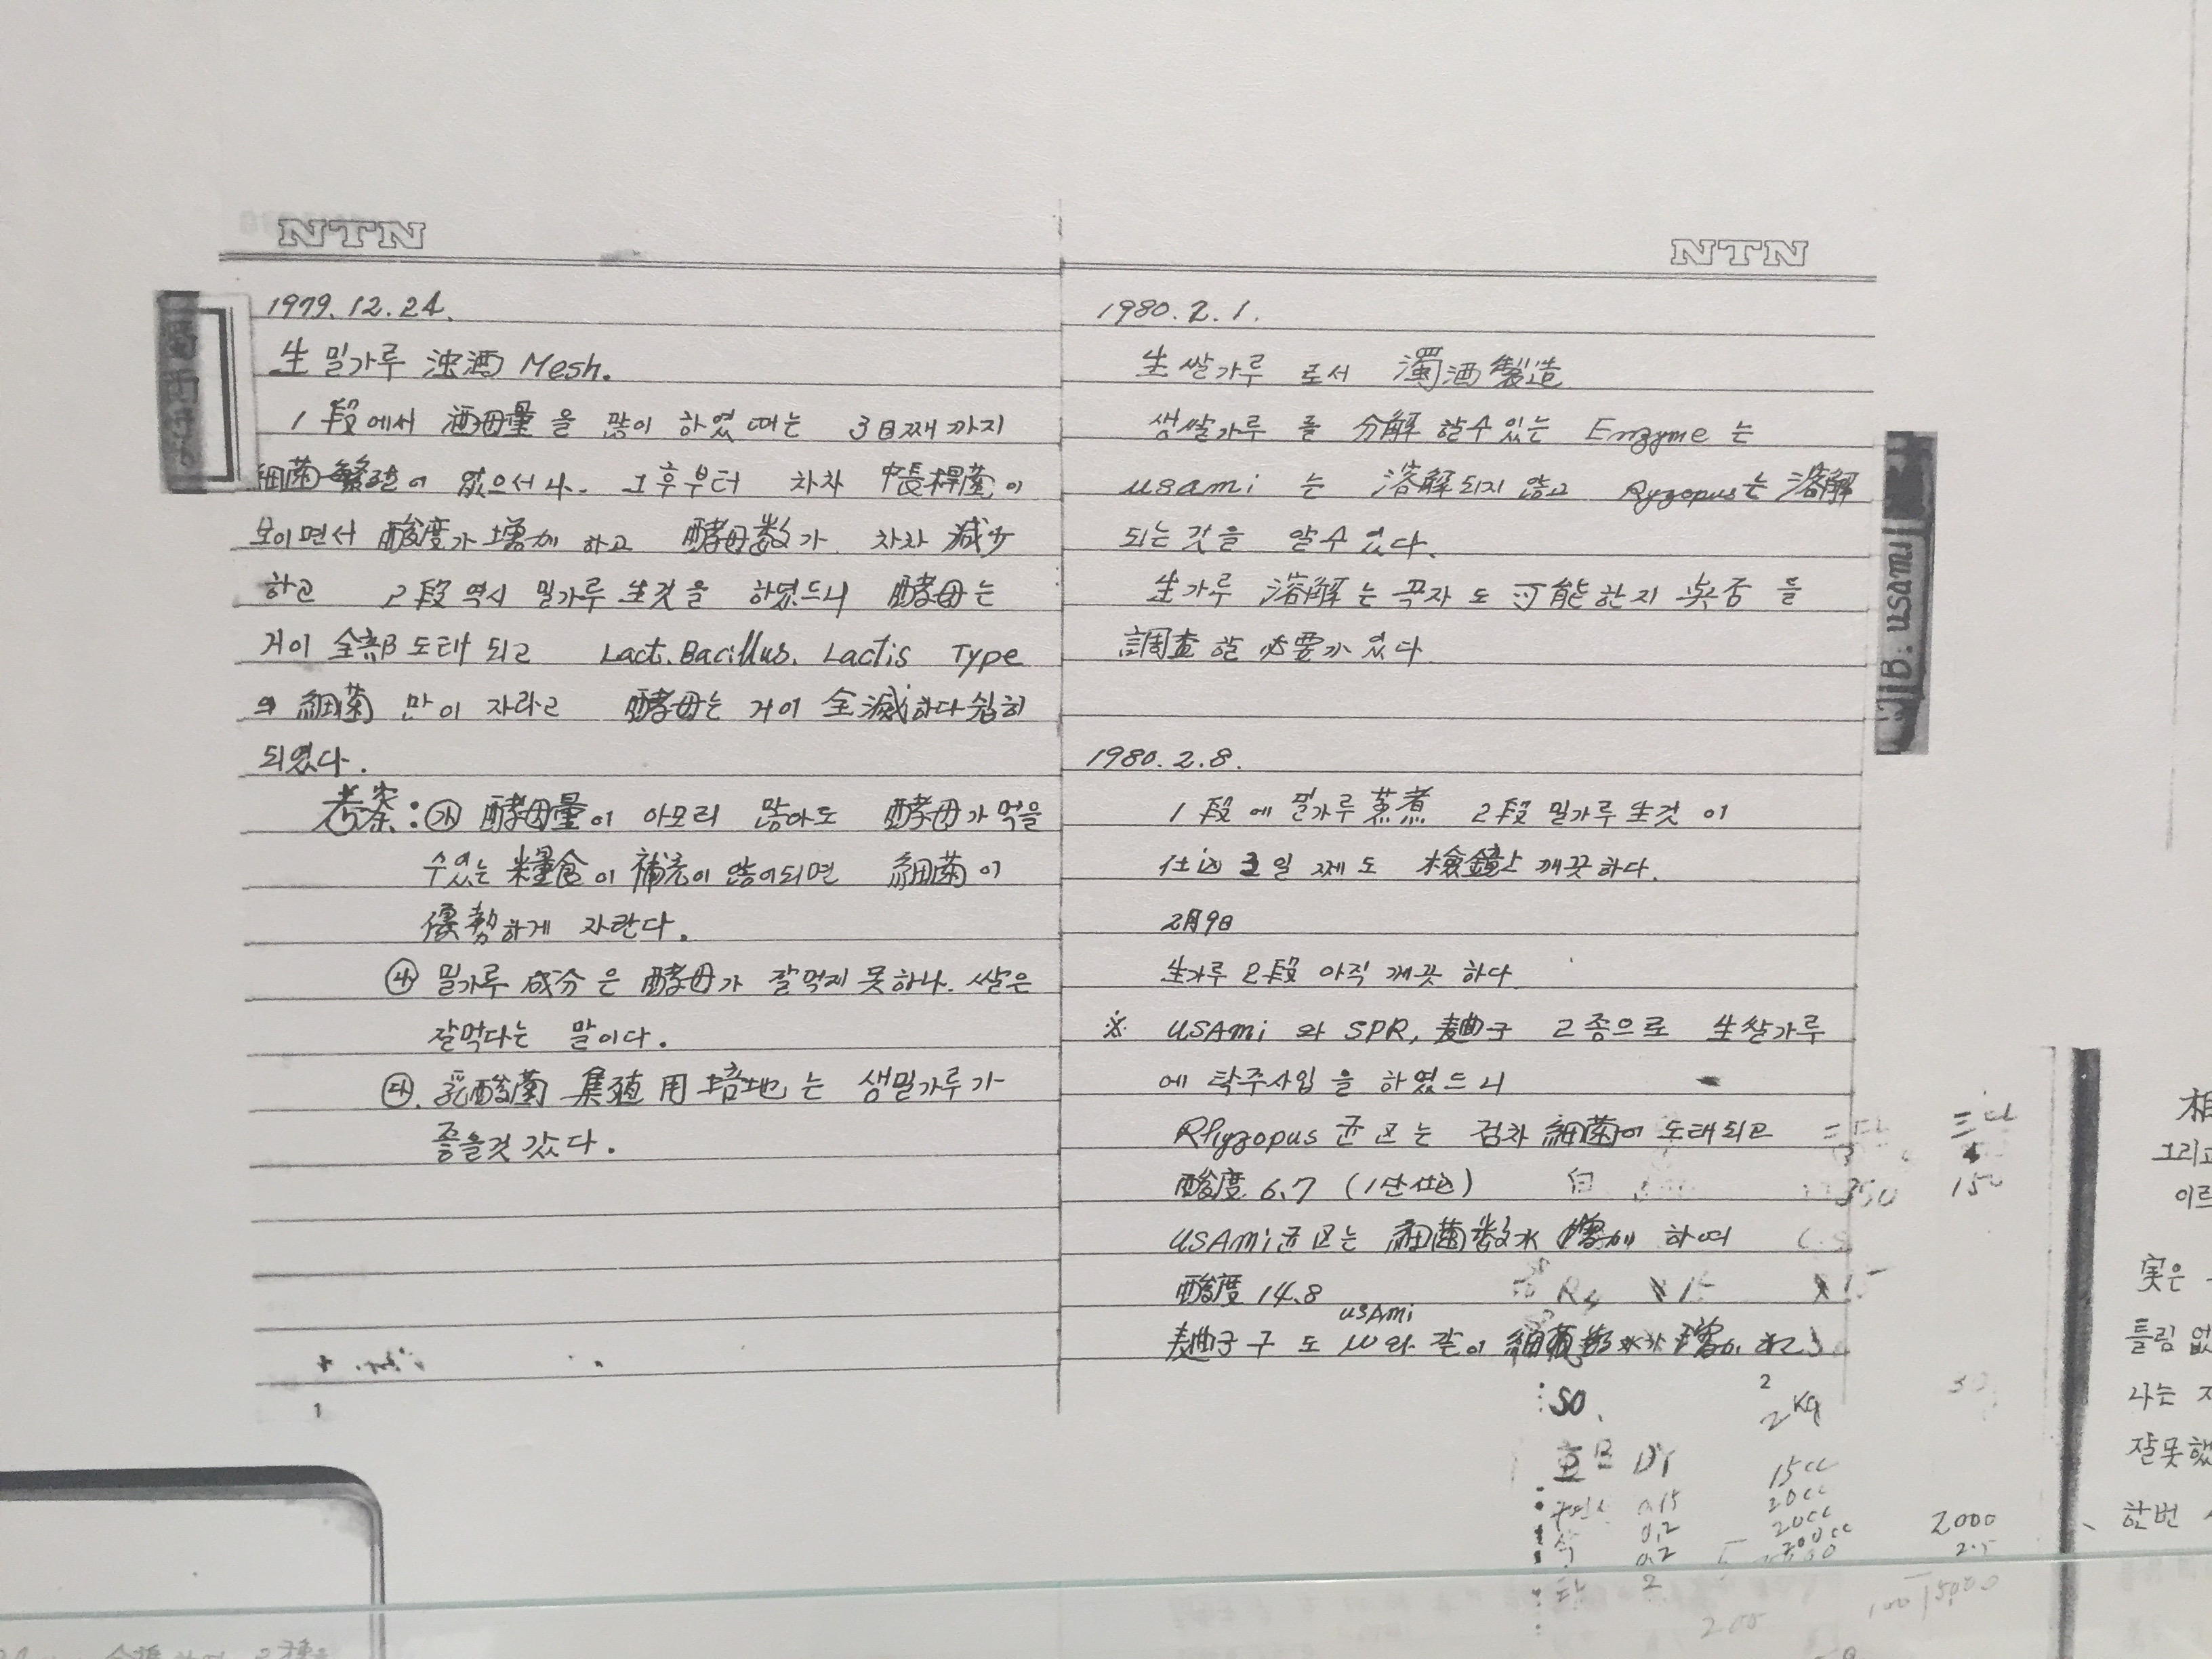 NTN
1979. 12. 24.
生 밀가루 浊酒 Mesh.
1段에서 酒母量을 많이 하였때는 3日째까지
細菌繁殖이 없으서나. 그후부터 차차 中長桿菌이
보이면서 酸度가 増加 하고 酵母数가 차차 減少
하고 2段 역시 밀가루 生것을 하였드니 酵母는
거이 全部 도태 되고 Lact. Bacillus. Lactis Type
의 細菌 만이 자라고 酵母는 거이 全滅하다 싶히
되였다.
考案: ㉮ 酵母量이 아모리 많아도 酵母가 먹을
수있는 糧食이 補充이 않이되면 細菌이
優勢하게 자란다.
㉯ 밀가루 成分은 酵母가 잘먹지 못하나. 쌀은
잘먹다는 말이다.
㉰. 乳酸菌 集殖用 培地는 생밀가루가
좋을것 갔다.
1
NTN
1980. 2. 1.
生쌀가루 로서 濁酒製造
생쌀가루 를 分解 할수 있는 Enzyme 는
usami 는 溶解되지 않고 Ryzopus는 溶解
되는 것을 알수 있다.
生가루 溶解는 곡자도 可能한지 與否 를
調査 할 必要가 있다
1980. 2. 8.
1段에 밀가루 蒸煮 2段 밀가루 生것 이
仕込 3일 째도 檢鏡上 깨끗하다.
2月9日
生가루 2段 아직 깨끗 하다
※ USAmi 와 SPR, 麹子 2종으로 生쌀가루
에 탁주사입 을 하였드니
Rhyzopus 균区는 점차 細菌이 도태되고
酸度 6.7 (1단仕込)
USAmi균区는 細菌数가 增加 하여
酸度 14.8
usAmi
麹子구 도 와 같이 細菌
B. usami
SO.
2
2 Kg
15cc
20cc
20cc
200cc
0.15
0.2
0.2
350
150
2000
200
그리고
実은
틀림 없
나는
잘못했
한번